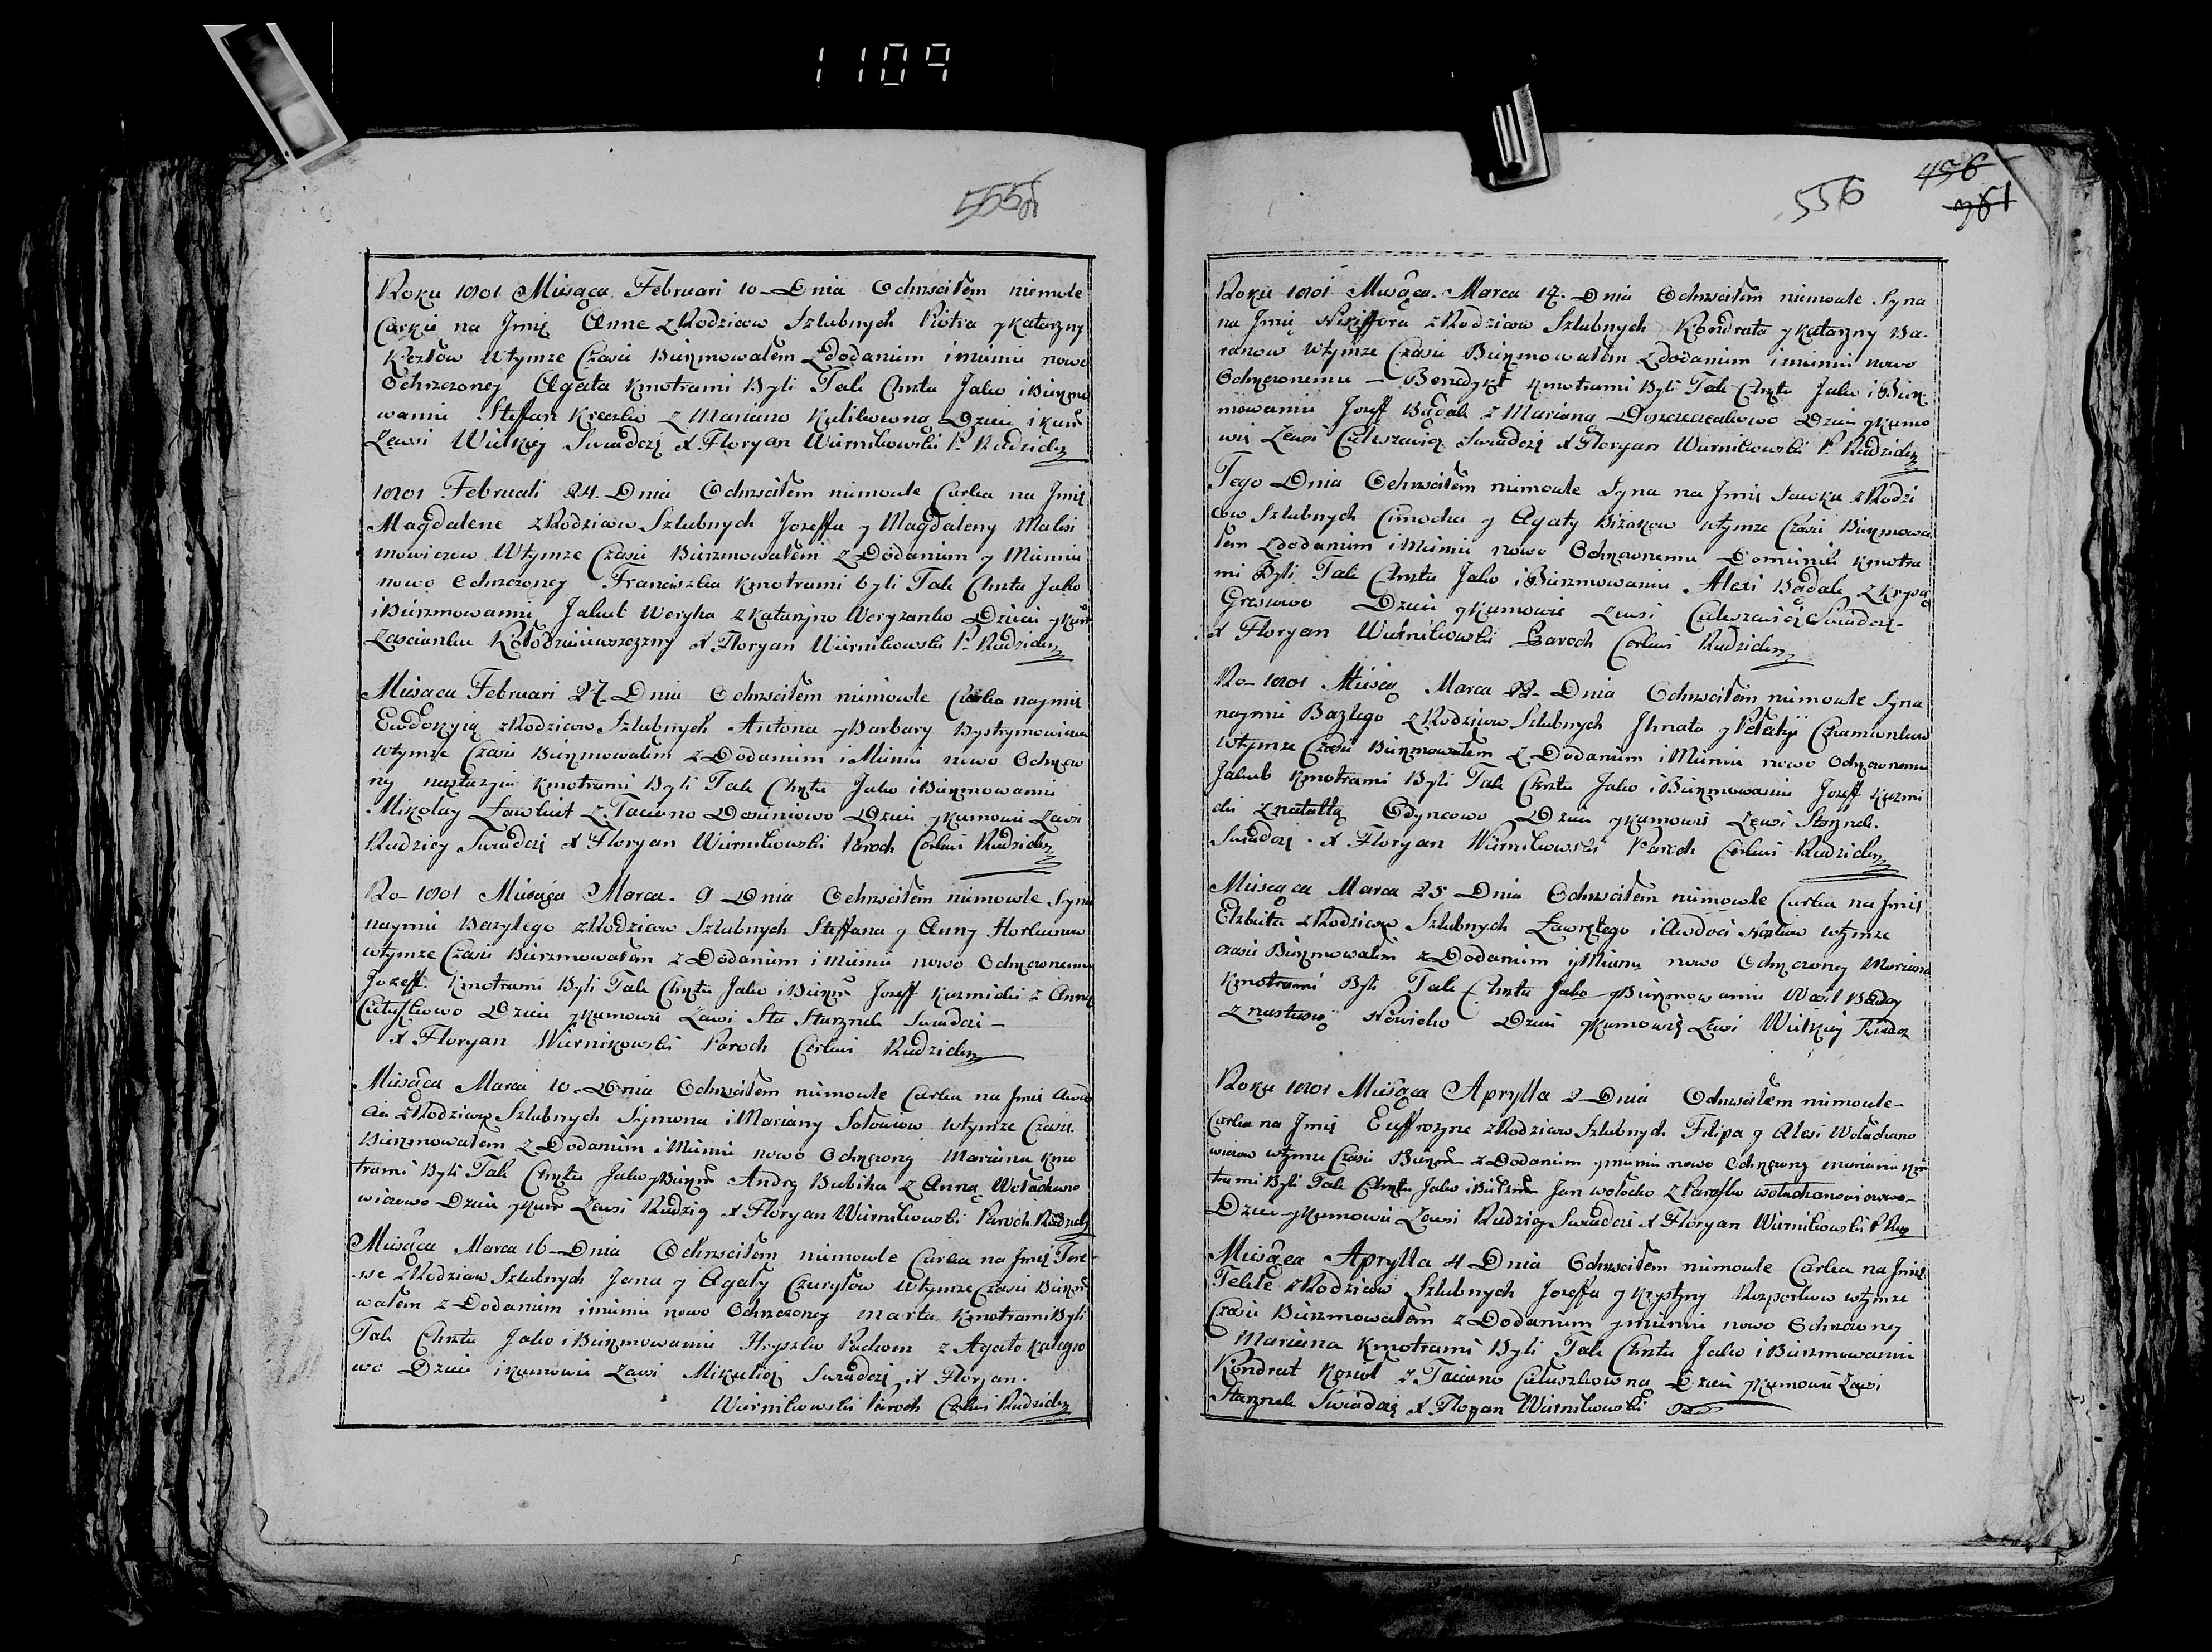 1109
555
Roku 1801 Miesąca Februari 10 Dnia Ochrzciłem niemole
Carkie na Jmię Anne z Rodzicow Szlubnych Piotra y Katarzny
Kozłow wtymze Czasie Bierzmowałem z Dodaniem imienia nowo
Ochrzczoney Agata Kmotrami Byli Tak Chrztu Jako i Bierzmo
waniu Steffan z Mariano Dzieci i kum
Zewsi Wielkiey Swiadczę X Floryan Wiernikowski P. Rudzicki
1801 Februari 24 Dnia Ochrzciłem niemowle Carka na Jmię
Magdalene z Rodzicow Szlubnych Jozeffa y Magdaleny Malisi
mowiczow Wtymze Czasie Bierzmowałem z Dodaniem y Mienia
nowo Ochrzczoney Franciszka Kmotrami byli Tak Chrztu Jako
i Bierzmowaniu Jakub Weryha z Katarzyno Weryzanko Dzieci y kum
Zascianku X Floryan Wiernikowski P. Rudzicki
Miesąca Februari 27 Dnia Ochrzciłem niemowle Carka naymie
Ewdokyią z Rodzicow Szlubnych Antona y Barbary Bystrymowiczow
wtymze Czasie Bierzmowałem z Dodaniem i Mienia nowo Ochrzczo
ny nastazyia Kmotrami Byli Tak Chrztu Jako i Bierzmowaniu
Mikołay Ławkiet z Taciano Dzieci y kumowie Zewsi
Rudzicy Swiadczę X Floryan Wiernikowski Paroch Cerkwi Rudzicki
Ro 1801 Miesąca Marca 9 Dnia Ochrzciłem niemowle Syna
naymie Bazylego z Rodzicow Szlubnych Steffana y Anny
wtymze Czasie Bierzmowałem z Dodaniem i Mienia nowo Ochrzczonemu
Jozeff Kmotrami Byli Tak Chrztu Jako i Bierzm Jozeff Kuzmicki z Anną
Całuszkowo Dzieci y kumowie Zewsi Sta Starzynek Swiadczę
X Floryan Wiernikowski Paroch Cerkwi Rudzicki
Miesąca Marca 10 Dnia Ochrzciłem niemowle Carka na Jmię Awdo
cia z Rodzicow Szlubnych Symona i Mariany Sołowiow wtymze Czasie
Bierzmowałem z Dodaniem i Mienia nowo Ochrzczoney Mariana kmo
trami Byli Tak Chrztu Jako y Bierzm Andrey Bubika z Anną Wołochano
wiczowo Dzieci y kum Zewsi Rudzicy X Floryan Wiernikowski Paroch Rudzicki
Miesąca Marca 16 Dnia Ochrzciłem niemowle Carka na Jmię Tere
se z Rodzicow Szlubnych Jana y Agaty Czuryłow Wtymze Czasie Bierzmo
wałem z Dodaniem imienia nowo Ochrzczoney marta Kmotrami Byli
Tak Chrztu Jako i Bierzmowaniu Hryszko Pachom z Agato
wo Dzieci i kumowie Zewsi Mikulicz Swiadczę X Floryan
Wiernikowski Paroch Cerkwi Rudzicki
556
496
Roku 1801 Miesąca Marca 17 Dnia Ochrzciłem niemowle Syna
na Jmię Nikiffora z Rodzicow Szlubnych Kondrata y Katarzny Ba
ranow wtymze Czasie Bierzmowałem z Dodaniem imienia nowo
Ochrzczonemu Benedykt Kmotrami Byli Tak Chrztu Jako i Bierz
mowaniu Jozeff Bądak z Marianą Dzieci y kumo
wie Zewsi Swiadczę X Floryan Wiernikowski P. Rudzicki
Tego Dnia Ochrzciłem niemowle Syna na Jmię Sawku z Rodzi
cow Szlubnych Cimocha y Agaty wtymze Czasie Bierzmowa
łem z Dodaniem i Mienia nowo Ochrzczonemu Dominik Kmotra
mi Byli Tak Chrztu Jako i Bierzmowaniu Alexi Bądak z
Dzieci y kumowie Zewsi Swiadczę
X Floryan Wiernikowski Paroch Cerkwi Rudzicki
Ro 1801 Miesąc Marca 22 Dnia Ochrzciłem niemowle Syna
naymie Bazylego z Rodzicow Szlubnych Jhnata y Pełahyi
Wtymze Czasie Bierzmowałem z Dodaniem i Mienia nowo Ochrzczonemu
Jakub Kmotrami Byli Tak Chrztu Jako i Bierzmowaniu Jozeff Kuzmi
cki z natallą Odyncowo Dzieci y kumowie Zewsi Starzynek
Swiadczę X Floryan Wiernikowski Paroch Cerkwi Rudzicki
Miesąca Marca 25 Dnia Ochrzciłem niemowle Carka na Jmię
Elzbieta z Rodzicow Szlubnych i Awdoci wtymze
czasie Bierzmowałem z Dodaniem y Mienia nowo Ochrzczoney Mariana
Kmotrami Byli Tak Chrztu Jako y Bierzmowaniu Wasil
z nastusią Dzieci y kumowie Zewsi Wielkiey Swiadcz
Roku 1801 Miesąca Aprylla 2 Dnia Ochrzciłem niemowle
Carka na Jmię Euffrozyne z Rodzicow Szlubnych Filipa y Alesi Wołochano
wiczow wtymze Czasie Bierzm z Dodaniem ymienia nowo Ochrzczoney mariana Km
trami Byli Tak Chrztu Jako i Bierzm Jan wołocho z Parasko wołochanowiczowo
Dzieci y kumowie Zewsi Rudzicy Swiadczę X Floryan Wiernikowski P Ru
Miesąca Aprylla 4 Dnia Ochrzciłem niemowle Carka na Jmię
Tekle z Rodzicow Szlubnych Jozeffa y Krystyny wtymze
Czasie Bierzmowałem z Dodaniem ymienia nowo Ochrzczoney
Mariana Kmotrami Byli Tak Chrztu Jako i Bierzmowaniu
Kondrat Kozioł z Taciano Całuszkowna Dzieci y kumowie Zewsi
Starzynek Swiadczę X Floryan Wiernikowski